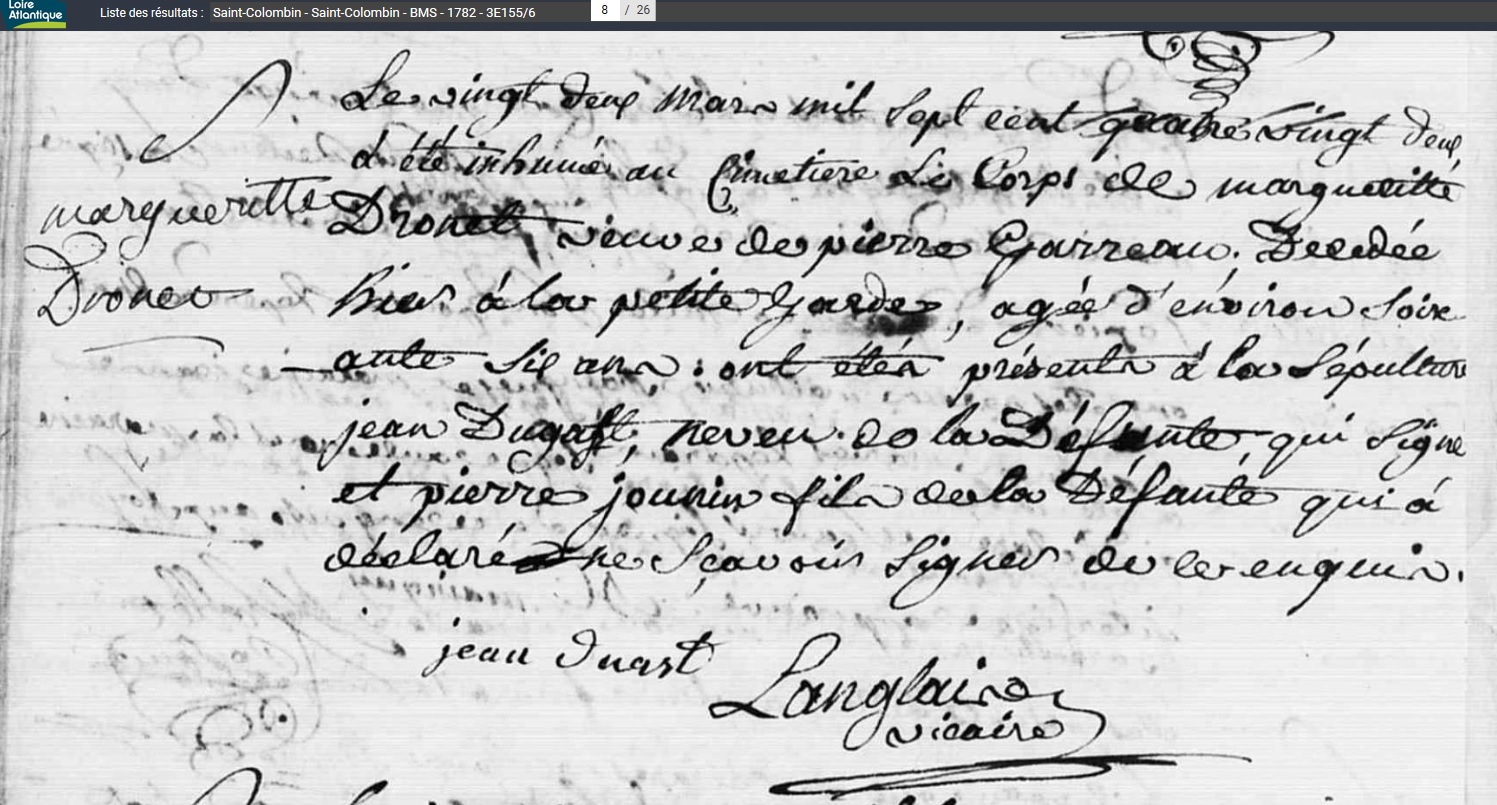 Loire
Atlantique
Liste des résultats : Saint-Colombin - Saint-Colombin - BMS - 1782 - 3E155/6
8 / 26
Le vingt deux mars mil sept cent quatre vingt deux
á été inhumé au Cimetiere Le Corps de marguerittte
margueritte
Dronet, veuve de pierre Garreau. Decedée
Dronet
hier á la petite Garde, agée d'environ soix
ante six ans : ont étés présents á la sépulture
jean Dugast, neveu de la Défunte, qui signe
et pierre jounin fils de la Défunte qui á
déclaré ne sçavoir signer de ce enquis.
jean duast
Langlais
vicaire